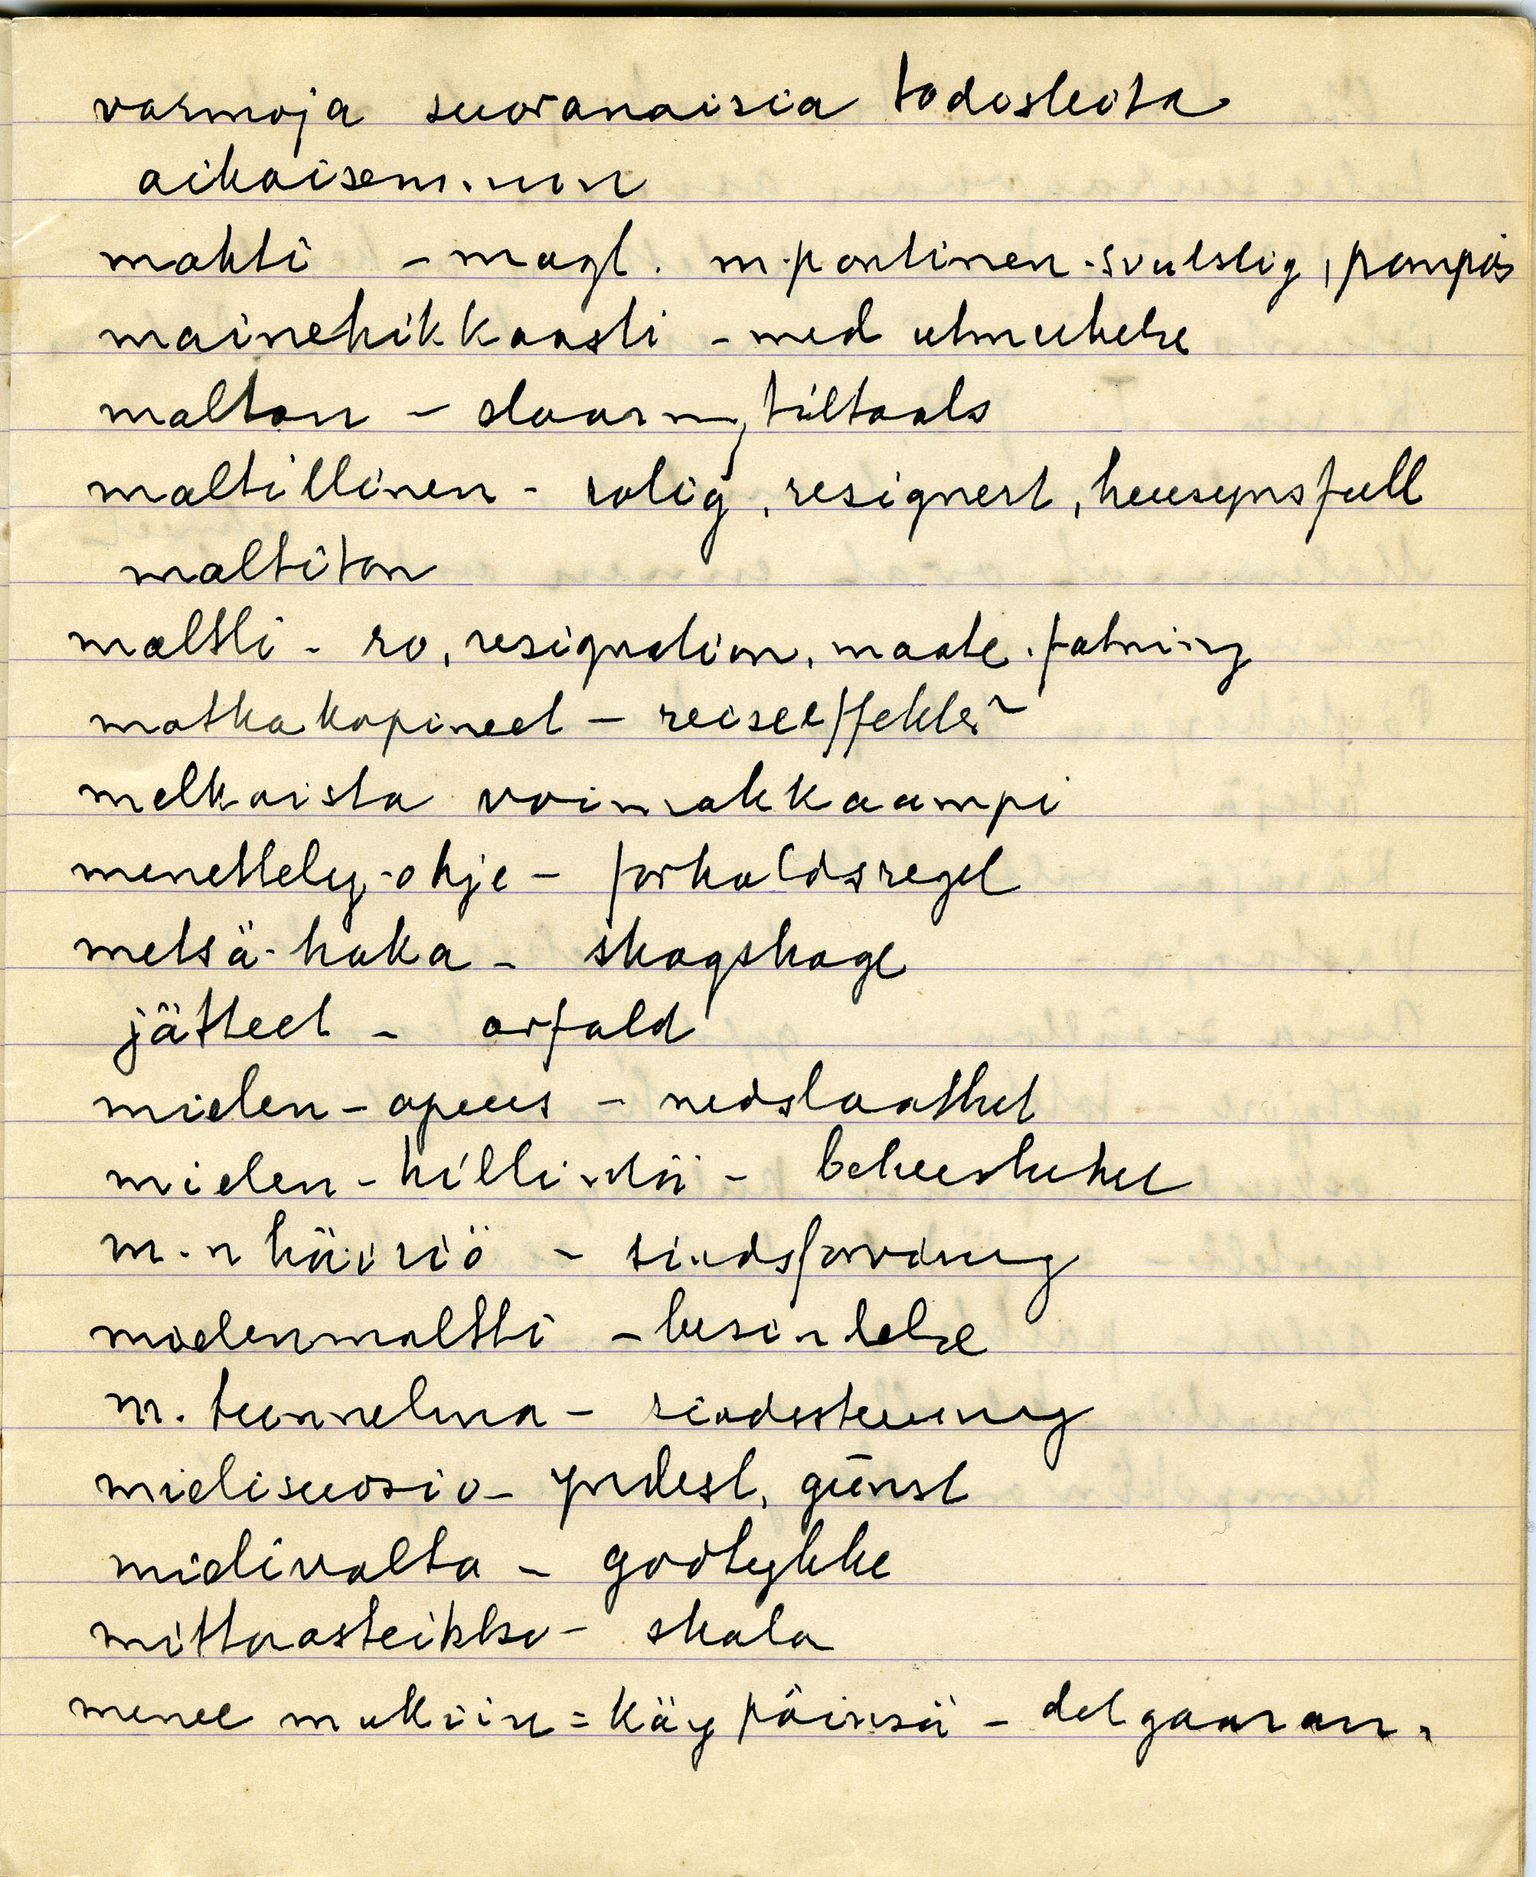 varmoja suoranaisia todisteita
aikaisemmin
mahti - magt. m-pontinen - svulstig, pompøs
mainehikkaasti - med utmerkelse
maltan - taals
maltillinen - rolig, resignert, hensynsfull
maltiton
maltti - ro, resignation, maate. fatning
matkakapineet - reiseeffekter
melkoista voimakkaampi
menettely-ohje - forholdsregel
metsä-haka - skogshage
jätteet - avfald
mielen-apeus - nedslaathet
mielen-hillintä - beherskelse
m-n häiriö - sindsforvirring
mielenmaltti - besindelse
m. tunnelma - sindsstemning
mielisuosio - yndest, gunst
mielivalta - godtykke
mitta-asteikko - skala
menee mukiin = käy päinsä - det gaar an.